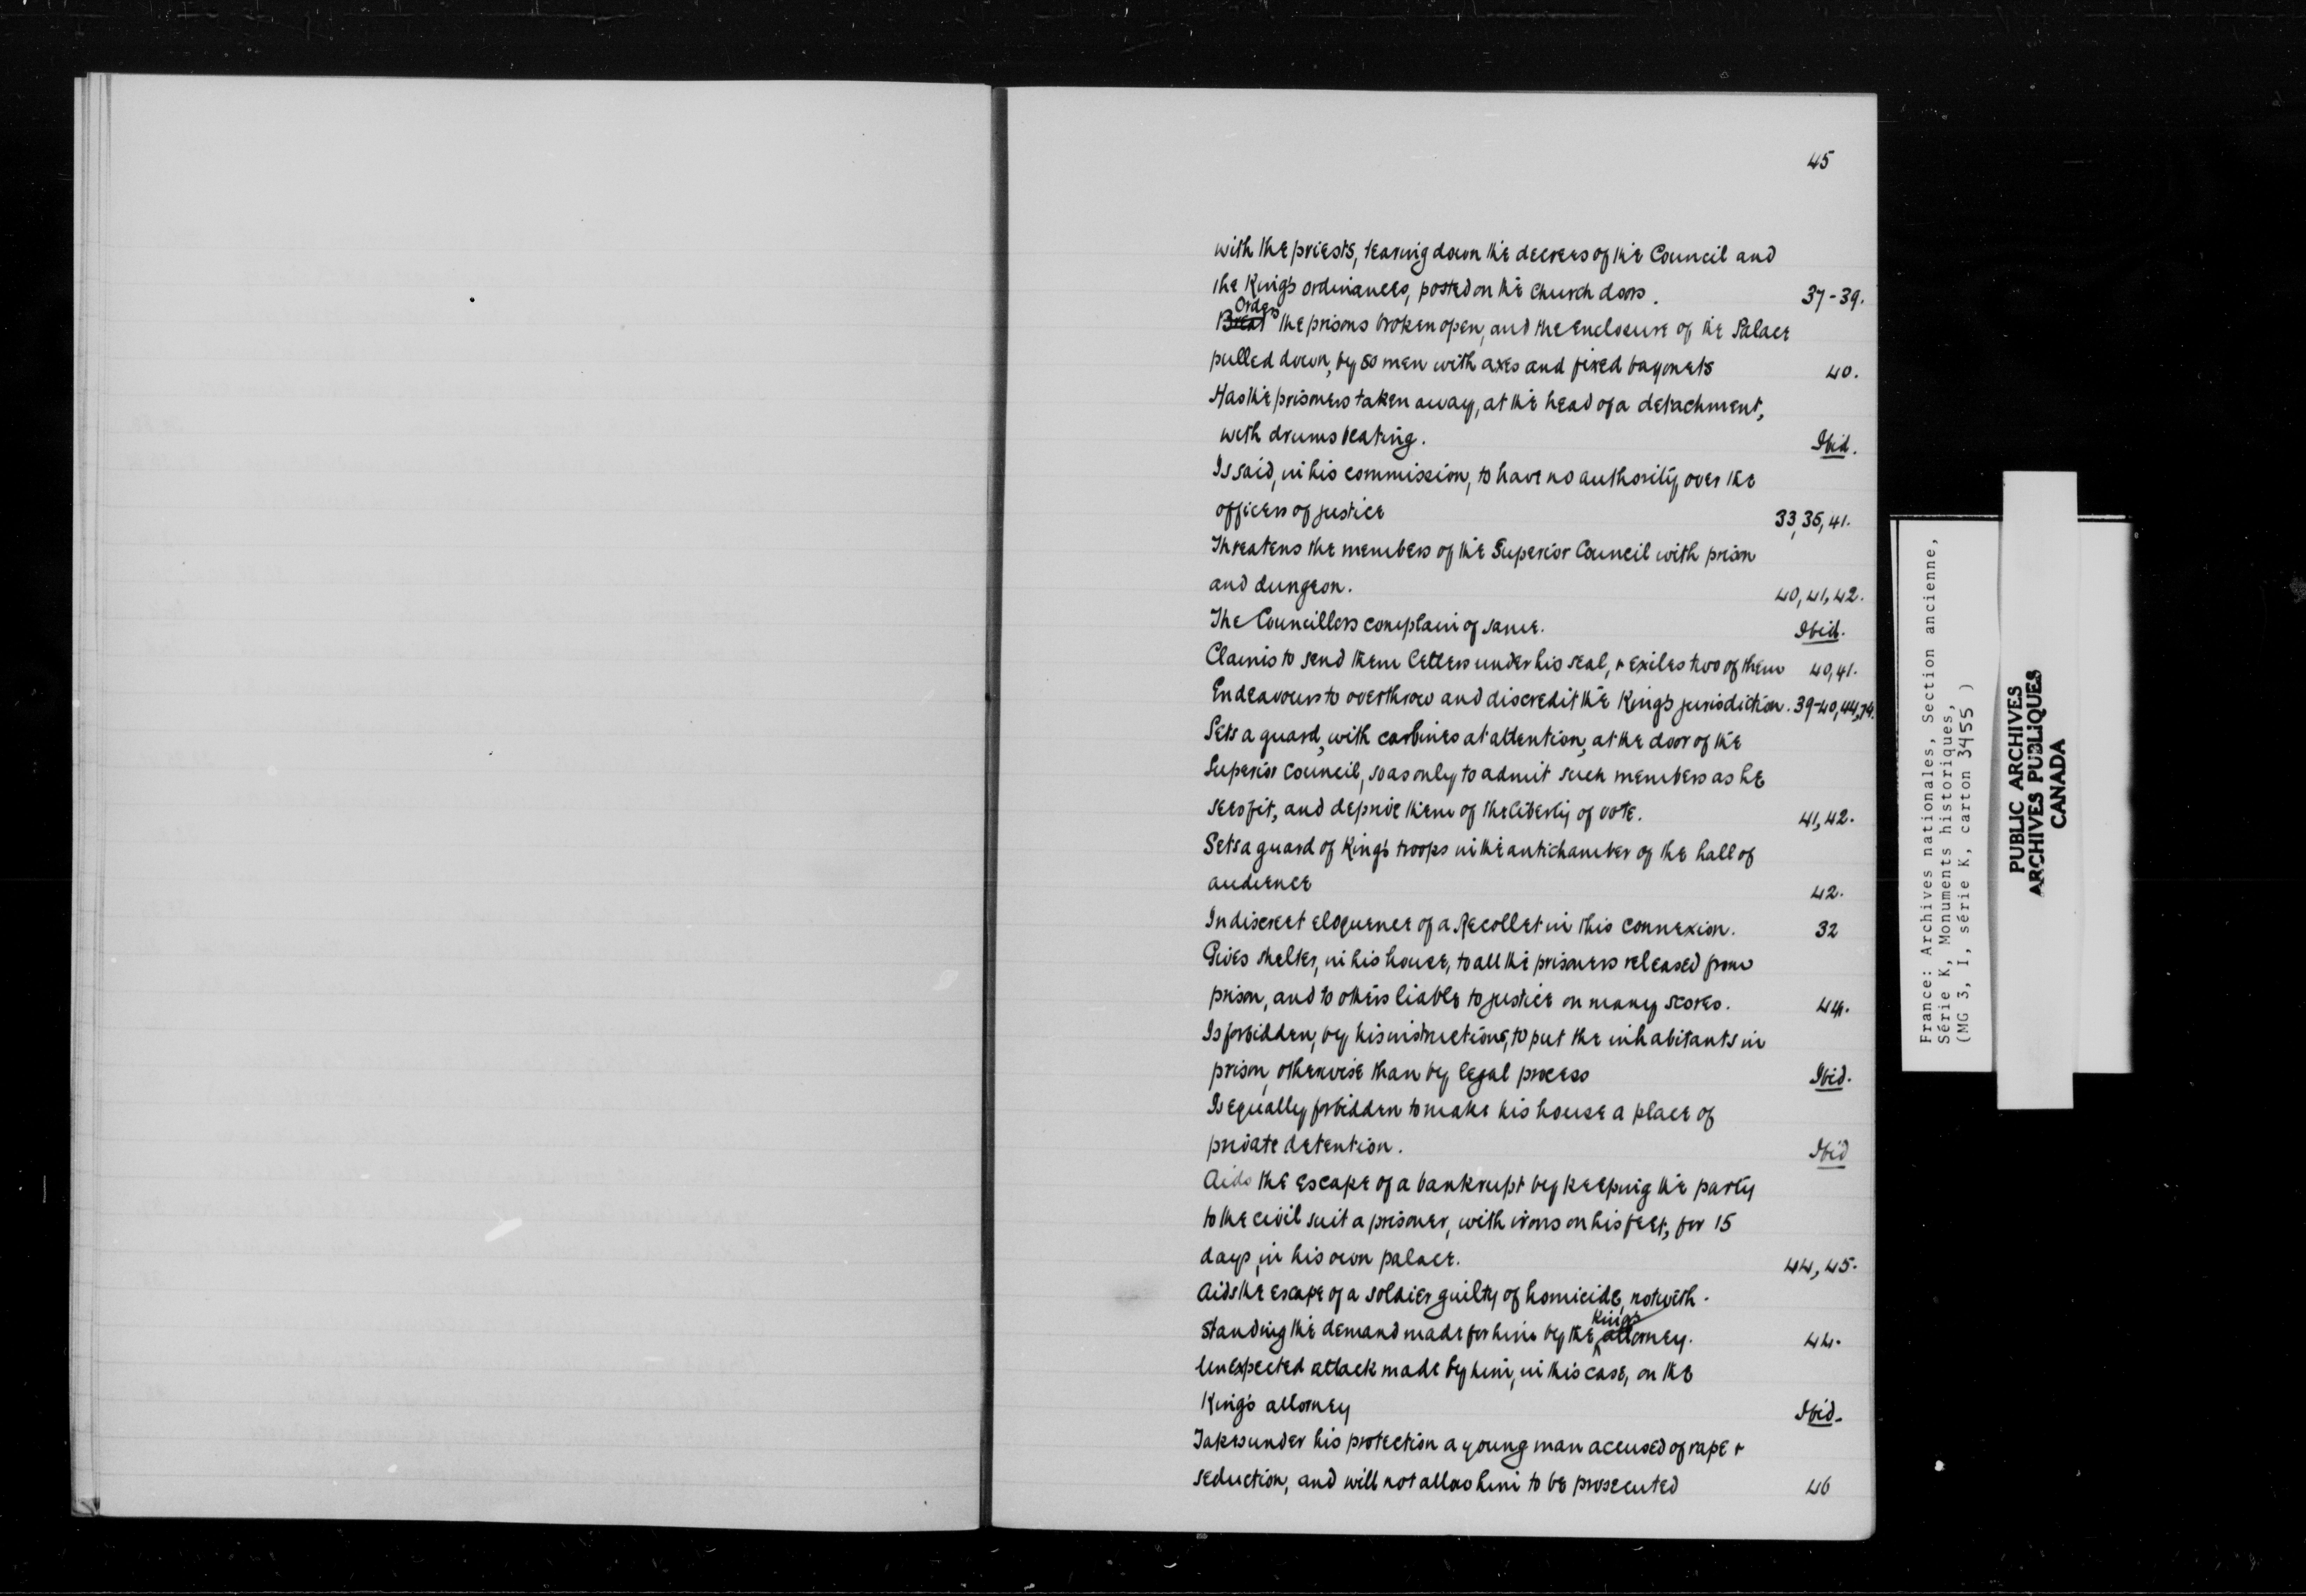 45
with the priests, tearing down the decrees of the Council and
the King's ordinances, posted on the church doors. 37-39.
Orders
the prisons broken open, and the enclosure of the Palace
pulled down, by 50 men with axes and fixed bayonets 40.
Has the prisoners taken away, at the head of a detachment,
with drums beating. Ibid.
Is said, in his commission, to have no authority over the
officers of justice 33, 35, 41.
Threatens the members of the Superior Council with prison
and dungeon. 40, 41, 42.
The Councillors complain of same. Ibid.
Claims to send them letters under his seal, + exiles two of them 40, 41.
Endeavours to overthrow and discredit the King's jurisdiction. 39-40, 44,
Sets a guard, with carbines at attention, at the door of the
Superior Council, so as only to admit such members as he
sees fit, and deprive them of the liberty of vote. 41, 42.
Sets a guard of King's troops in the antichamber of the hall of
audience 42.
Indiscreet eloquence of a Recollet in this connexion. 32
Gives shelter, in his house, to all the prisoners released from
prison, and to others liable to justice on many scores. 44.
Is forbidden, by his instructions, to put the inhabitants in
prison, otherwise than by legal process Ibid.
Is equally forbidden to make his house a place of
private detention. Ibid
Aids the escape of a bankrupt by keeping the party
to the civil suit a prisoner, with irons on his feet, for 15
days, in his own palace. 44, 45.
Aids the escape of a soldier guilty of homicide, notwith-
King's
standing the demand made for him by the attorney. 44.
Unexpected attack made by him, in this case, on the
King's attorney Ibid.
Takes under his protection a young man accused of rape +
seduction, and will not allow him to be prosecuted 46
France: Archives nationales, Section ancienne,
Série K, Monuments historiques,
(MG 3, I, série K, carton 3455 )
PUBLIC ARCHIVES
ARCHIVES PUBLIQUES
CANADA